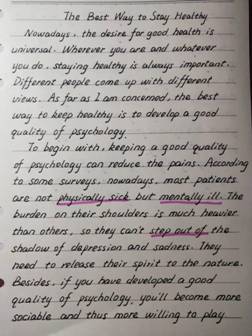 The Best Way to Stay Healthy
Nowadays, the desire for good health is
universal. Wherever you are and whatever
you do, staying healthy is always important.
Different people come up with different
views. As far as I am concerned, the best
way to keep healthy is to develop a good
quality of psychology.
To begin with, keeping a good quality
of psychology can reduce the pains. According
to some surveys, nowadays, most patients
are not physically sick but mentally ill. The
burden on their shoulders is much heavier
than others, so they can't step out of the
shadow of depression and sadness. They
need to release their spirit to the nature.
Besides, if you have developed a good
quality of psychology, you'll become more
sociable and thus more willing to play